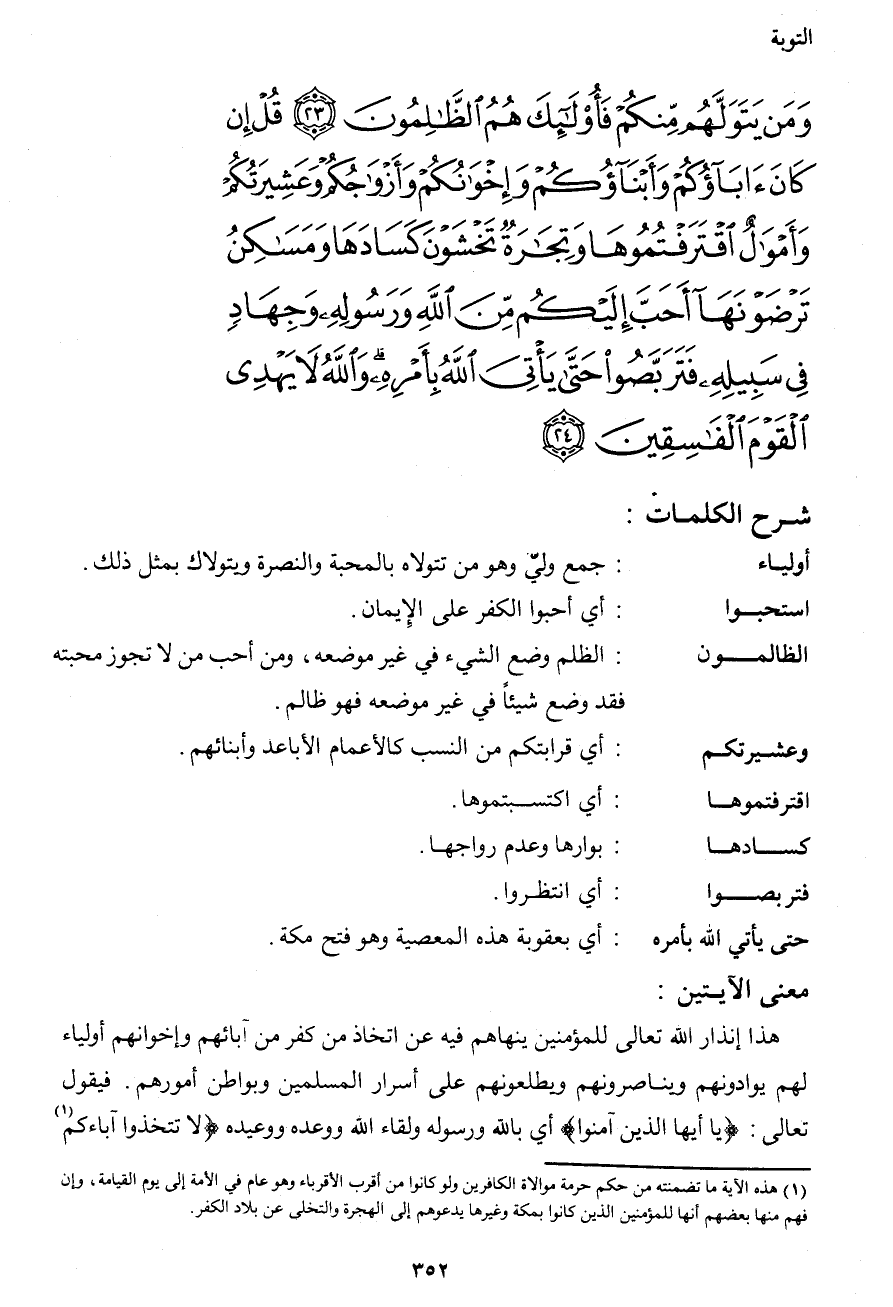 التوبة
وَمَن يَتَوَلَّهُم مِّنكُمْ فَأُوْلَٰٓئِكَ هُمُ ٱلظَّٰلِمُونَ ﴿٢٣﴾ قُلْ إِن
كَانَ ءَابَآؤُكُمْ وَأَبْنَآؤُكُمْ وَإِخْوَٰنُكُمْ وَأَزْوَٰجُكُمْ وَعَشِيرَتُكُمْ
وَأَمْوَٰلٌ ٱقْتَرَفْتُمُوهَا وَتِجَٰرَةٌ تَخْشَوْنَ كَسَادَهَا وَمَسَٰكِنُ
تَرْضَوْنَهَآ أَحَبَّ إِلَيْكُم مِّنَ ٱللَّهِ وَرَسُولِهِۦ وَجِهَادٍ
فِى سَبِيلِهِۦ فَتَرَبَّصُوا۟ حَتَّىٰ يَأْتِىَ ٱللَّهُ بِأَمْرِهِۦ ۗ وَٱللَّهُ لَا يَهْدِى
ٱلْقَوْمَ ٱلْفَٰسِقِينَ ﴿٢٤﴾
شرح الكلمات :
أولياء : جمع وليّ وهو من تتولاه بالمحبة والنصرة ويتولاك بمثل ذلك .
استحبوا : أي أحبوا الكفر على الإيمان .
الظالمون : الظلم وضع الشيء في غير موضعه ، ومن أحب من لا تجوز محبته
فقد وضع شيئاً في غير موضعه فهو ظالم .
وعشيرتكم : أي قرابتكم من النسب كالأعمام الأباعد وأبنائهم .
اقترفتموها : أي اكتسبتموها .
كسادها : بوارها وعدم رواجها .
فتربصوا : أي انتظروا .
حتى يأتي الله بأمره : أي بعقوبة هذه المعصية وهو فتح مكة .
معنى الآيتين :
هذا إنذار الله تعالى للمؤمنين ينهاهم فيه عن اتخاذ من كفر من آبائهم وإخوانهم أولياء
لهم يوادونهم ويناصرونهم ويطلعونهم على أسرار المسلمين وبواطن أمورهم . فيقول
تعالى : ﴿يا أيها الذين آمنوا﴾ أي بالله ورسوله ولقاء الله ووعده ووعيده ﴿لا تتخذوا آباءكم(١)
(١) هذه الآية ما تضمنته من حكم حرمة موالاة الكافرين ولو كانوا من أقرب الأقرباء وهو عام في الأمة إلى يوم القيامة ، وإن
فهم منها بعضهم أنها للمؤمنين الذين كانوا بمكة وغيرها يدعوهم إلى الهجرة والتخلى عن بلاد الكفر .
٣٥٢